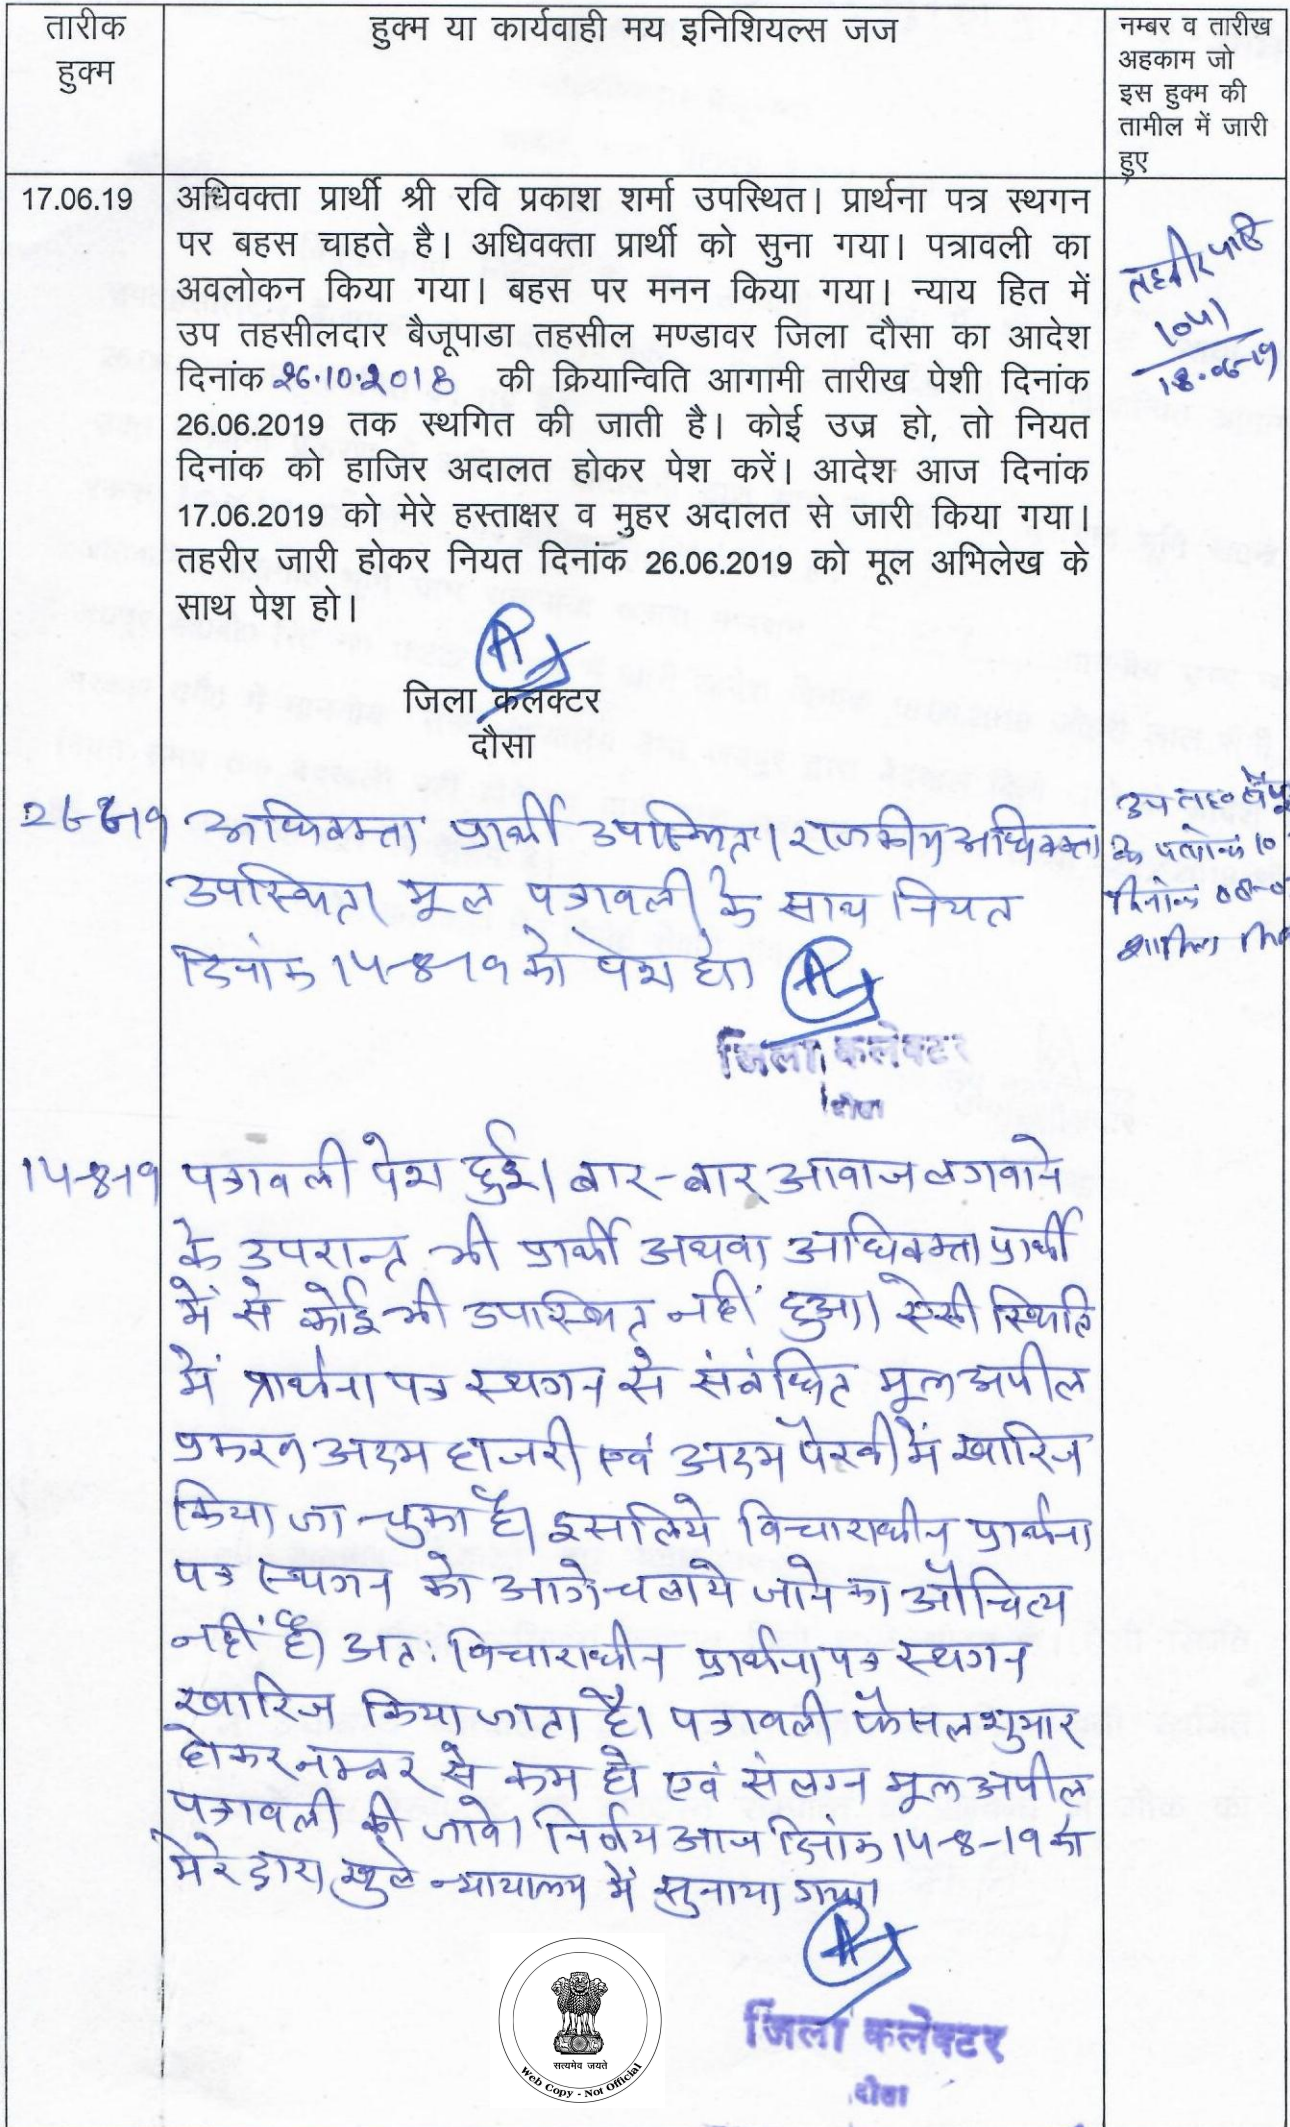 तारीक
हुक्म
हुक्म या कार्यवाही मय इनिशियल्स जज
नम्बर व तारीख
अहकाम जो
इस हुक्म की
तामील में जारी
हुए
17.06.19
अधिवक्ता प्रार्थी श्री रवि प्रकाश शर्मा उपस्थित। प्रार्थना पत्र स्थगन
पर बहस चाहते है। अधिवक्ता प्रार्थी को सुना गया। पत्रावली का
अवलोकन किया गया। बहस पर मनन किया गया। न्याय हित में
उप तहसीलदार बैजूपाडा तहसील मण्डावर जिला दौसा का आदेश
दिनांक 26.10.2018 की क्रियान्विति आगामी तारीख पेशी दिनांक
26.06.2019 तक स्थगित की जाती है। कोई उज्र हो, तो नियत
दिनांक को हाजिर अदालत होकर पेश करें। आदेश आज दिनांक
17.06.2019 को मेरे हस्ताक्षर व मुहर अदालत से जारी किया गया।
तहरीर जारी होकर नियत दिनांक 26.06.2019 को मूल अभिलेख के
साथ पेश हो।
जिला कलक्टर
दौसा
18-06-19
26-6-19
अधिवक्ता प्रार्थी उपस्थित। राजकीय अधिवक्ता
उपस्थित। मूल पत्रावली के साथ नियत
दिनांक 14-8-19 को पेश हो।
उप तह०
के पत्रांक 10
दिनांक
जिला कलेक्टर
दौसा
14-8-19
पत्रावली पेश हुई। बार-बार आवाज लगवाने
के उपरान्त भी प्रार्थी अथवा अधिवक्ता प्रार्थी
में से कोई भी उपस्थित नहीं हुआ। ऐसी स्थिति
में प्रार्थना पत्र स्थगन से संबंधित मूल अपील
प्रकरण अदम हाजरी एवं अदम पैरवी में खारिज
किया जा चुका है। इसलिये विचाराधीन प्रार्थना
पत्र स्थगन को आगे चलाये जाने का औचित्य
नहीं है। अतः विचाराधीन प्रार्थना पत्र स्थगन
खारिज किया जाता है। पत्रावली फैसल शुमार
होकर नम्बर से कम हो एवं संलग्न मूल अपील
पत्रावली की जावे। निर्णय आज दिनांक 14-8-19 को
मेरे द्वारा खुले न्यायालय में सुनाया गया।
सत्यमेव जयते
Web Copy - Not Official
जिला कलेक्टर
दौसा